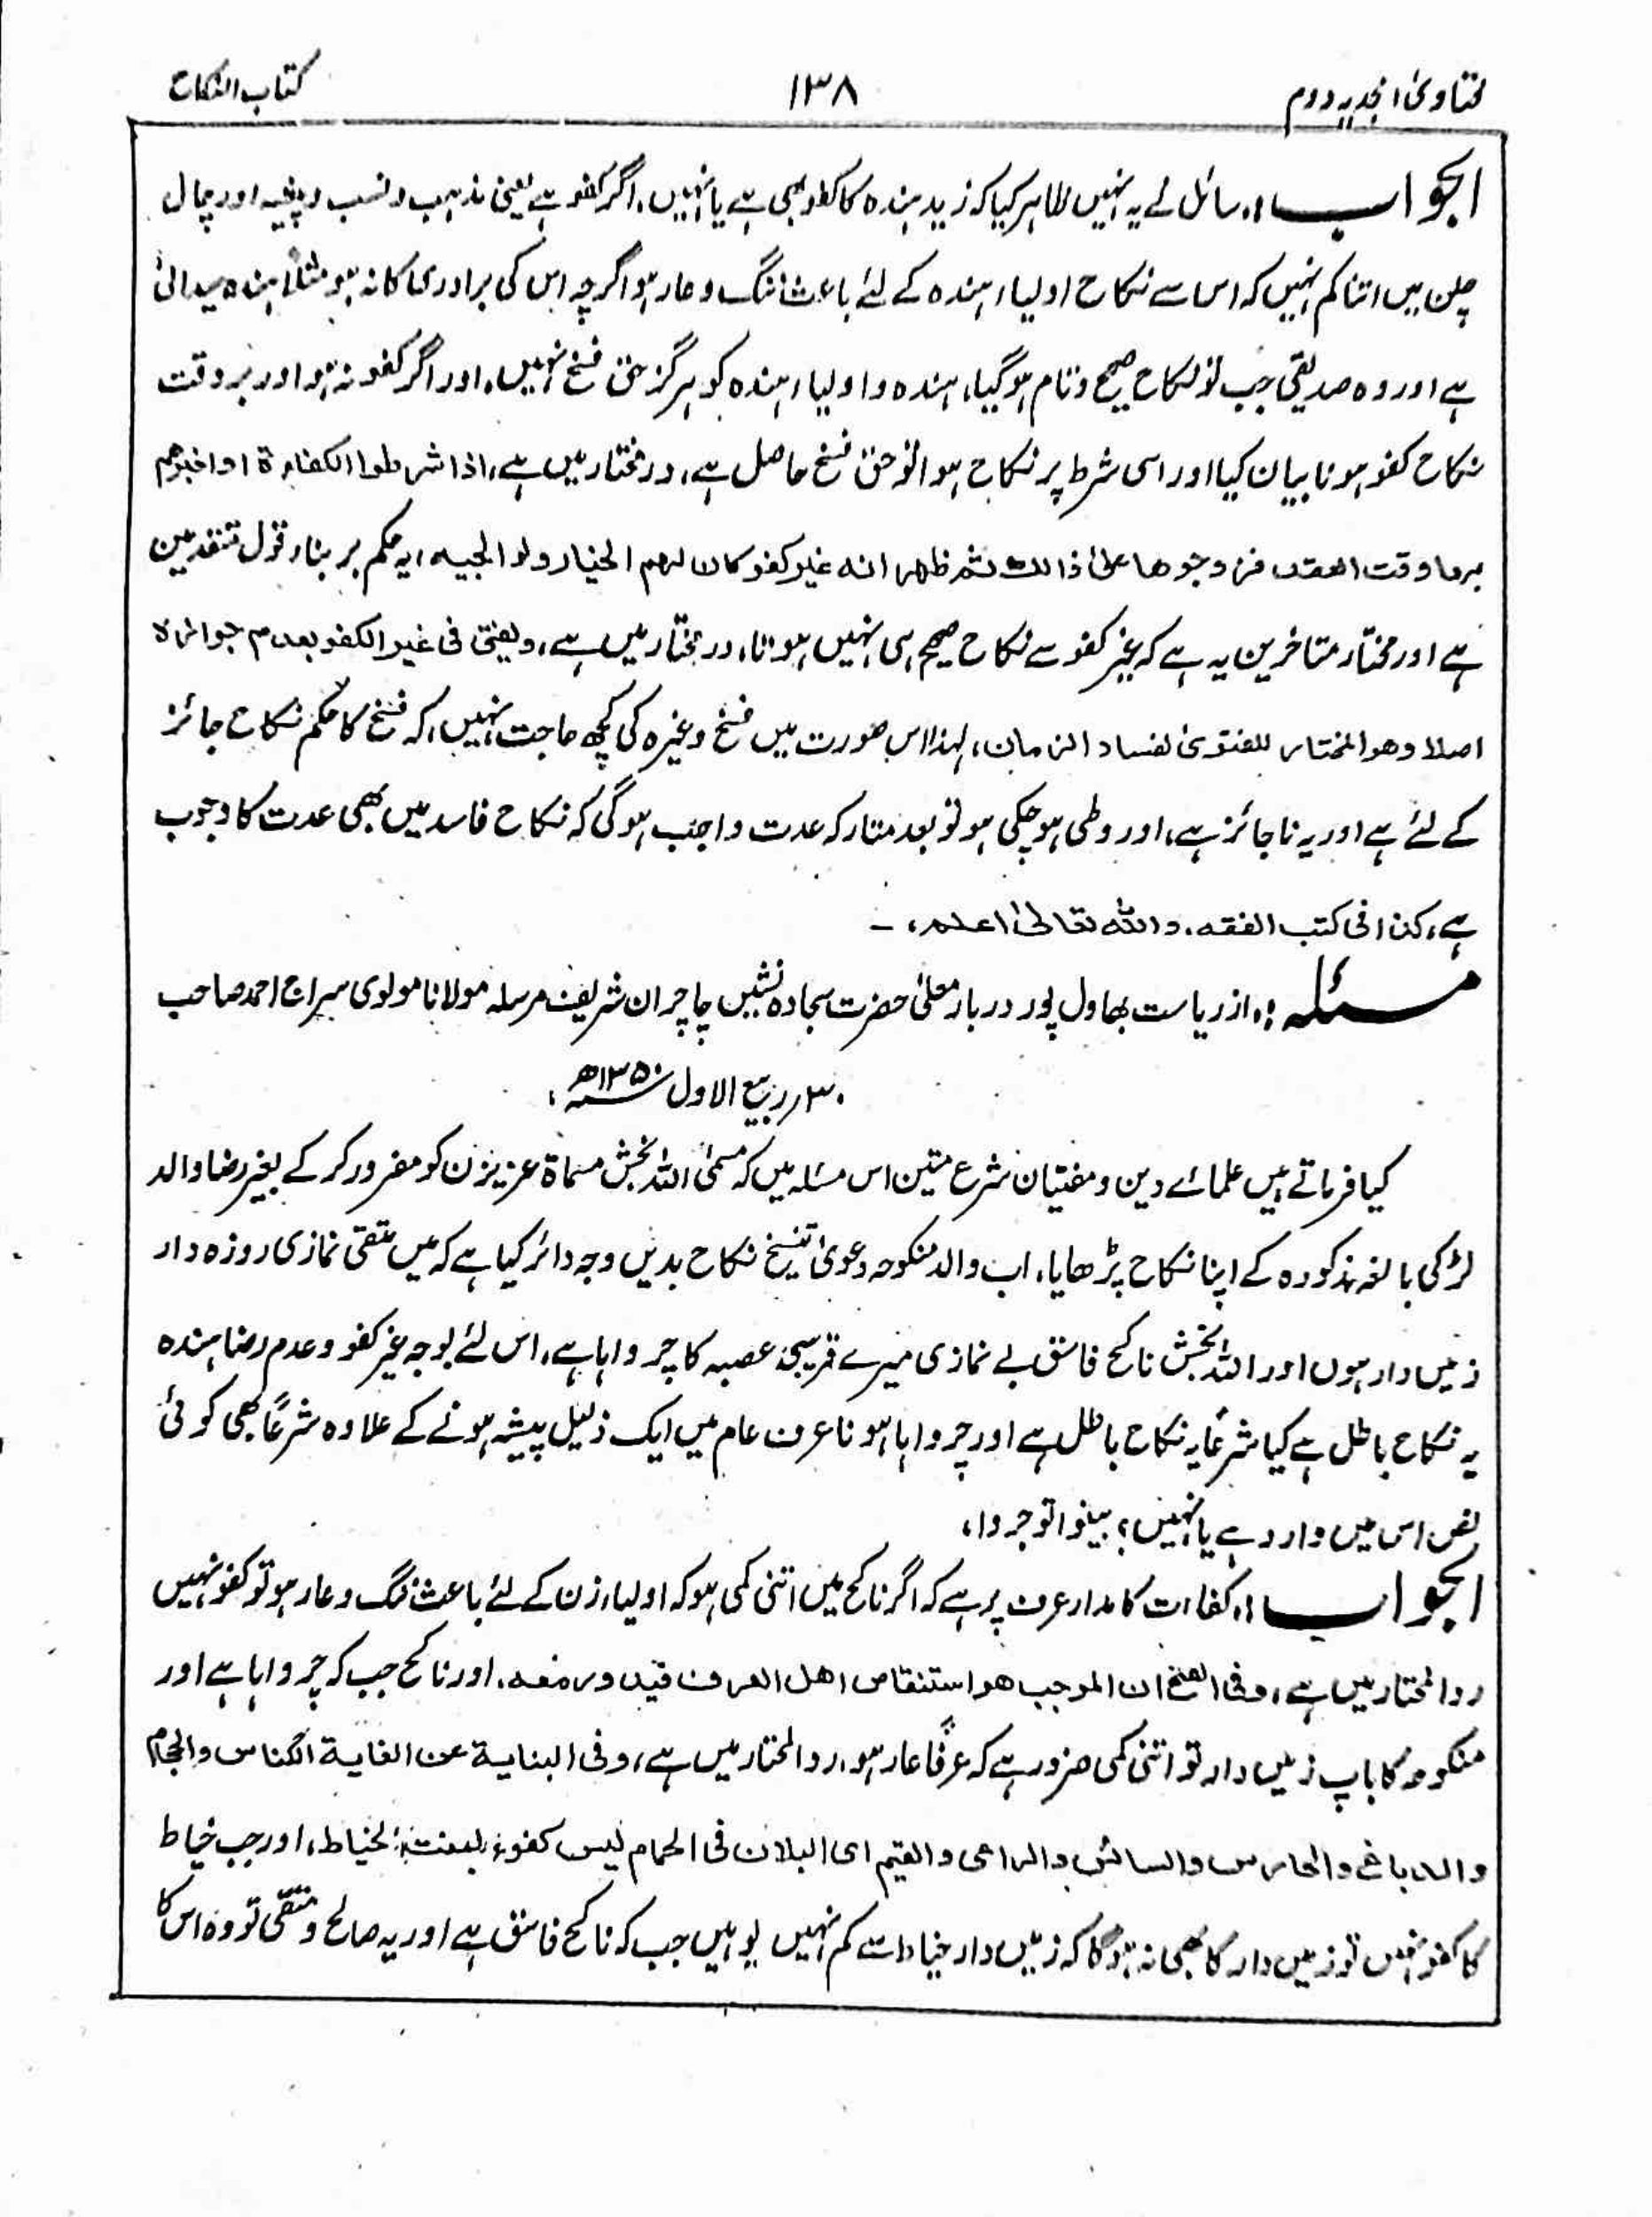 فتاویٰ امجدیہ دوم
۱۳۸
کتاب النکاح
الجواب :۔ سائل نے یہ نہیں ظاہر کیا کہ زید ہندہ کا کفو بھی ہے یا نہیں، اگر کفو ہے یعنی مذہب و نسب و پیشہ اور چال
چلن میں اتنا کم نہیں کہ اس سے نکاح اولیاء ہندہ کے لئے باعث ننگ و عار ہو اگرچہ اس کی برادری کا نہ ہو مثلاً ہندہ سیدانی
ہے اور وہ صدیقی جب تو نکاح صحیح و تام ہو گیا، ہندہ و اولیاء ہندہ کو ہرگز حق فسخ نہیں، اور اگر کفو نہ ہو اور بر وقت
نکاح کفو ہونا بیان کیا اور اسی شرط پر نکاح ہوا تو حق فسخ حاصل ہے، در مختار میں ہے، اذا شرطوا الکفاءۃ او اخبرھم
بھا وقت العقد فزوجوھا علیٰ ذالک ثم ظھر انہ غیر کفو کان لھم الخیار ولوالجیہ، یہ حکم بر بناء قول متقدمین
ہے اور مختار متاخرین یہ ہے کہ غیر کفو سے نکاح صحیح ہی نہیں ہوتا، در مختار میں ہے، ویفتیٰ فی غیر الکفو بعدم جوازہ
اصلا وھو المختار للفتویٰ لفساد الزمان، لہذا اس صورت میں فسخ وغیرہ کی کچھ حاجت نہیں، کہ فسخ کا حکم نکاح جائز
کے لئے ہے اور یہ ناجائز ہے، اور وطی ہو چکی ہو تو بعد متارکہ عدت واجب ہوگی کہ نکاح فاسد میں بھی عدت کا وجوب
ہے، کذا فی کتب الفقہ۔ واللہ تعالیٰ اعلم، ۔
مسئلہ :۔ از ریاست بھاول پور دربار معلیٰ حضرت سجادہ نشیں چاچران شریف مرسلہ مولانا مولوی سراج احمد صاحب
۳۰؍ ربیع الاول ۱۳۵۰ھ،
کیا فرماتے ہیں علمائے دین و مفتیان شرع متین اس مسئلہ میں کہ مسمیٰ اللہ بخش مسماۃ عزیزن کو مفرور کر کے بغیر رضا والد
لڑکی بالغہ مذکورہ کے اپنا نکاح پڑھایا، اب والد منکوحہ دعویٰ تنسیخ نکاح بدیں وجہ دائر کیا ہے کہ میں متقی نمازی روزہ دار
زمیں دار ہوں اور اللہ بخش ناکح فاسق بے نمازی میرے قریبی عصبہ کا چرواہا ہے، اس لئے بوجہ غیر کفو و عدم رضا ہندہ
یہ نکاح باطل ہے کیا شرعًا یہ نکاح باطل ہے اور چرواہا ہونا عرف عام میں ایک ذلیل پیشہ ہونے کے علاوہ شرعًا بھی کوئی
نص اس میں وارد ہے یا نہیں؟ بینوا توجروا،
الجواب :۔ کفاءت کا مدار عرف پر ہے کہ اگر ناکح میں اتنی کمی ہو کہ اولیاء زن کے لئے باعث ننگ و عار ہو تو کفو نہیں
رد المحتار میں ہے، وفی الفتح ان الموجب ھو استنقاص اھل العرف فیدور معہ، اور ناکح جب کہ چرواہا ہے اور
منکوحہ کا باپ زمیں دار تو اتنی کمی ضرور ہے کہ عرفًا عار ہو، رد المحتار میں ہے، وفی البنایۃ عن الغایۃ الکناس والحجام
والدباغ والحارس والسائس والراعی والقیم ای البلان فی الحمام لیس کفوء لبنت الخیاط، اور جب خیاط
کا کفو نہیں تو زمیں دار کا بھی نہ ہوگا کہ زمیں دار خیاط سے کم نہیں یوہیں جب کہ ناکح فاسق ہے اور یہ صالح و متقی تو وہ اس کا